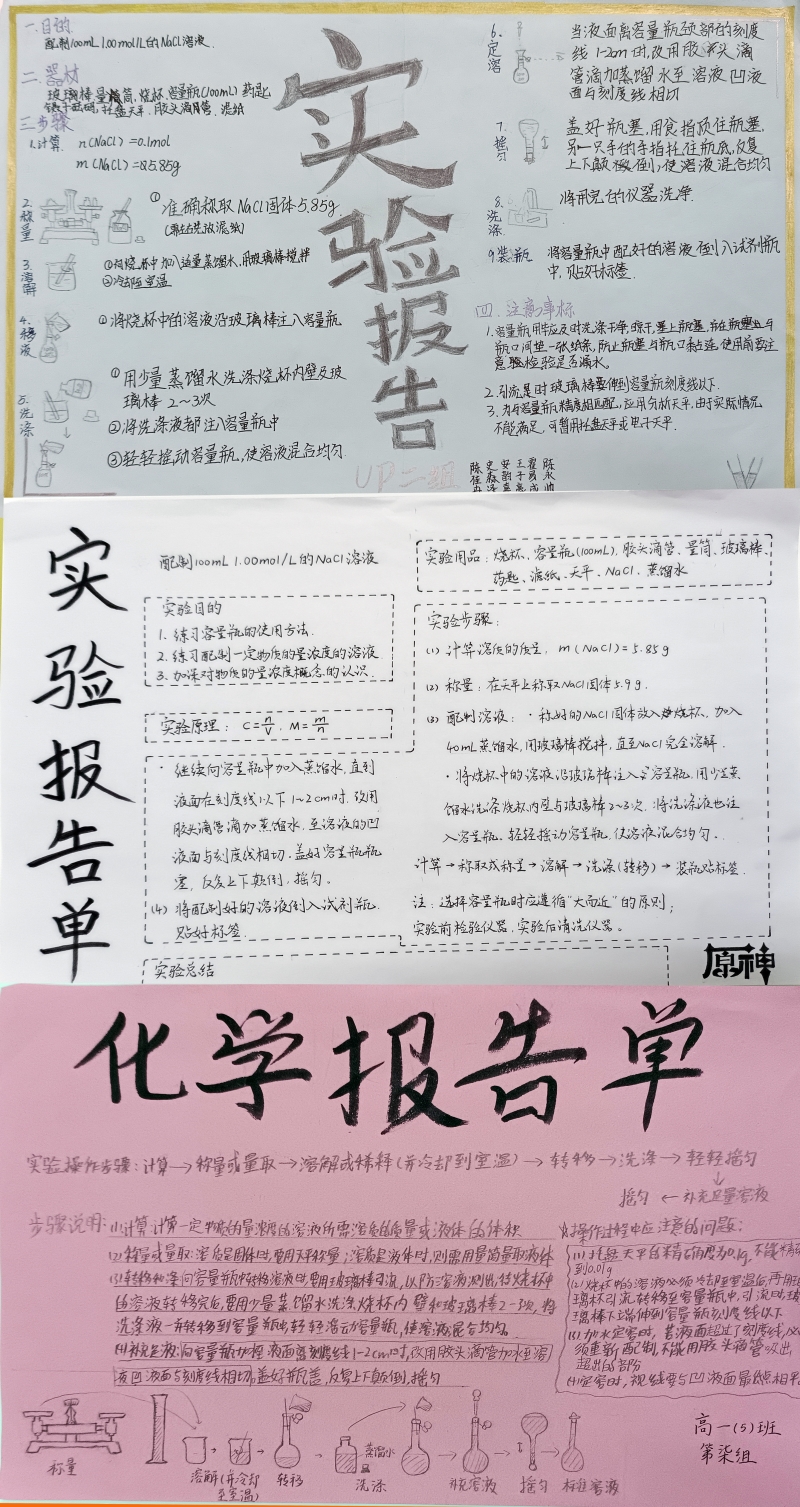 实验报告
一.目的
配制100mL 1.00mol/L的NaCl溶液.
二.器材
玻璃棒,量筒,烧杯,容量瓶(100mL)药匙,
托盘天平.胶头滴管.滤纸
三步骤
1.计算 n(NaCl)=0.1mol
m(NaCl)=5.85g
2.称量
①准确称取NaCl固体5.85g.
3.溶解
①向烧杯中加入适量蒸馏水,用玻璃棒搅拌
②冷却至室温
4.移液
①将烧杯中的溶液沿玻璃棒注入容量瓶
5.洗涤
①用少量蒸馏水洗涤烧杯内壁及玻
璃棒 2~3次
②将洗涤液都注入容量瓶中
③轻轻摇动容量瓶,使溶液混合均匀.
6.定容
当液面离容量瓶颈部的刻度
线1-2cm时,改用胶头滴
管滴加蒸馏水至溶液凹液
面与刻度线相切
7.摇匀
盖好瓶塞,用食指顶住瓶塞,
另一只手的手指托住瓶底,反复
上下颠倒,使溶液混合均匀
8.洗涤
将用完的仪器洗净.
9.装瓶
将容量瓶中配好的溶液倒入试剂瓶
中,贴好标签.
四.注意事标
1.容量瓶用毕应及时洗涤干净,晾干,塞上瓶塞,并在瓶塞与
瓶口间垫一张纸条,防止瓶塞与瓶口黏连,使用前要注
意验检验是否漏水.
2.引流是时玻璃棒要伸到容量瓶刻度线以下.
3.为与容量瓶精度相匹配,应用分析天平,由于实际情况
不能满足,可暂用托盘天平或电子天平.
UP二组
实验报告单
配制100mL 1.00mol/L的NaCl溶液
实验目的
1. 练习容量瓶的使用方法.
2. 练习配制一定物质的量浓度的溶液.
3. 加深对物质的量浓度概念的认识.
实验原理: C=n/V . M=m/n
实验用品: 烧杯、容量瓶(100mL)、胶头滴管、量筒、玻璃棒、
药匙、滤纸、天平、NaCl、蒸馏水
实验步骤:
(1) 计算溶质的质量, m(NaCl)=5.85g
(2) 称量: 在天平上称取NaCl固体5.9g.
(3) 配制溶液: ·称好的NaCl固体放入烧杯、加入
40mL蒸馏水,用玻璃棒搅拌,直至NaCl完全溶解.
·将烧杯中的溶液沿玻璃棒注入容量瓶,用少量蒸
馏水洗涤烧杯内壁与玻璃棒2~3次,将洗涤液也注
入容量瓶、轻轻摇动容量瓶,使溶液混合均匀.
·继续向容量瓶中加入蒸馏水,直到
液面在刻度线以下1~2cm时,改用
胶头滴管滴加蒸馏水,至溶液的凹
液面与刻度线相切.盖好容量瓶瓶
塞,反复上下颠倒,摇匀.
(4) 将配制好的溶液倒入试剂瓶,
贴好标签.
计算→称取或称量→溶解→洗涤(转移)→装瓶贴标签.
注: 选择容量瓶时应遵循"大而近"的原则;
实验前检验仪器,实验后清洗仪器。
实验总结
原神
化学报告单
实验操作步骤:计算→称量或量取→溶解或稀释(并冷却到室温)→转移→洗涤→轻轻摇匀
摇匀←补充足量溶液
步骤说明:(1)计算:计算一定物质的量浓度的溶液所需溶质的质量或液体的体积
(2)称量或量取:溶质是固体时,要用天平称量;溶质是液体时,则需用量筒量取液体
(3)转移和洗涤:向容量瓶中转移溶液时,要用玻璃棒引流,以防溶液测出,待烧杯中
的溶液转移完后,要用少量蒸馏水洗涤烧杯内壁和玻璃棒2-3次,将
洗涤液一并转移到容量瓶中,轻轻晃动容量瓶,使溶液混合均匀。
(4)补充足液:向容量瓶加水液面离刻度线1-2cm时,改用胶头滴管加水至溶
液凹液面与刻度线相切,盖好瓶盖,反复上下颠倒,摇匀
操作过程中应注意的问题:
(1)托盘天平的精确度为0.1g,不能精确
到0.01g
(2)烧杯中的溶液必须冷却至室温后,再用玻
璃杯引流转移至容量瓶中,引流时玻
璃棒下端伸到容量瓶刻度线以下
(3)加水定容时,若液面超过了刻度线,必
须重新配制,不能用胶头滴管吸出
超出的部份
(4)定容时,视线要与凹液面最低点相平
称量
溶解(并冷却
至室温)
转移
蒸馏水
洗涤
补充溶液
摇匀
标准溶液
高一(5)班
第柒组